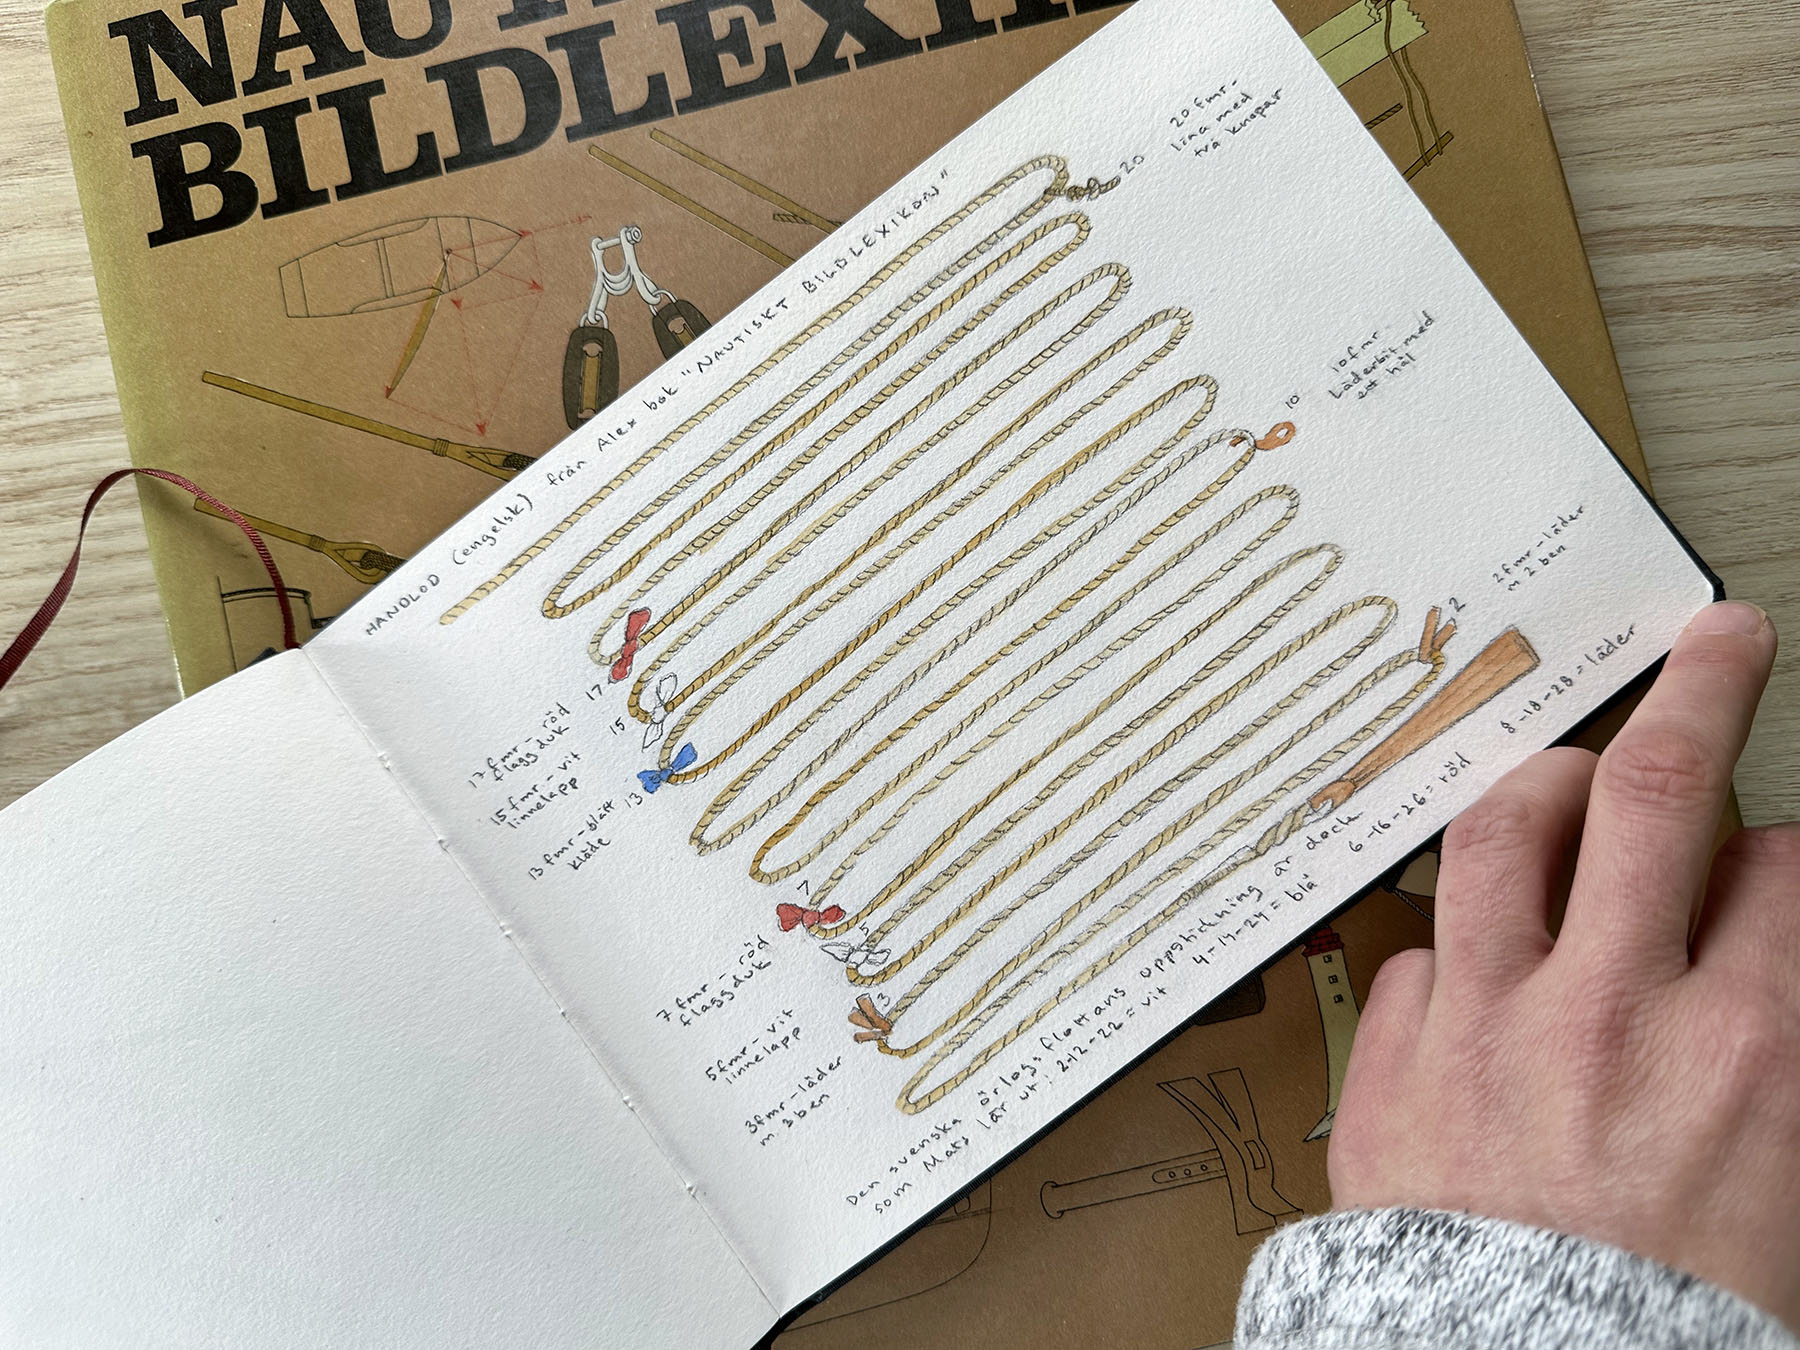 NAUTI
BILDLEXIK
HANDLOD (engelsk) från Alex bok "NAUTISKT BILDLEXIKON"
20 fmr-
lina med
två knopar
20
10 fmr
Läderbit med
ett hål
10
2 fmr - läder
m 2 ben
2
17
17 fmr - röd
flaggduk
15
15 fmr - vit
linnelapp
13
13 fmr - blått
kläde
7
7 fmr - röd
flaggduk
5
5 fmr - vit
linnelapp
3
3 fmr - läder
m. 3 ben
Den svenska örlogsflottans uppstickning är dock
som Mats lär ut: 2-12-22 = vit 4-14-24 = blå 6-16-26 = röd 8-18-28 = läder